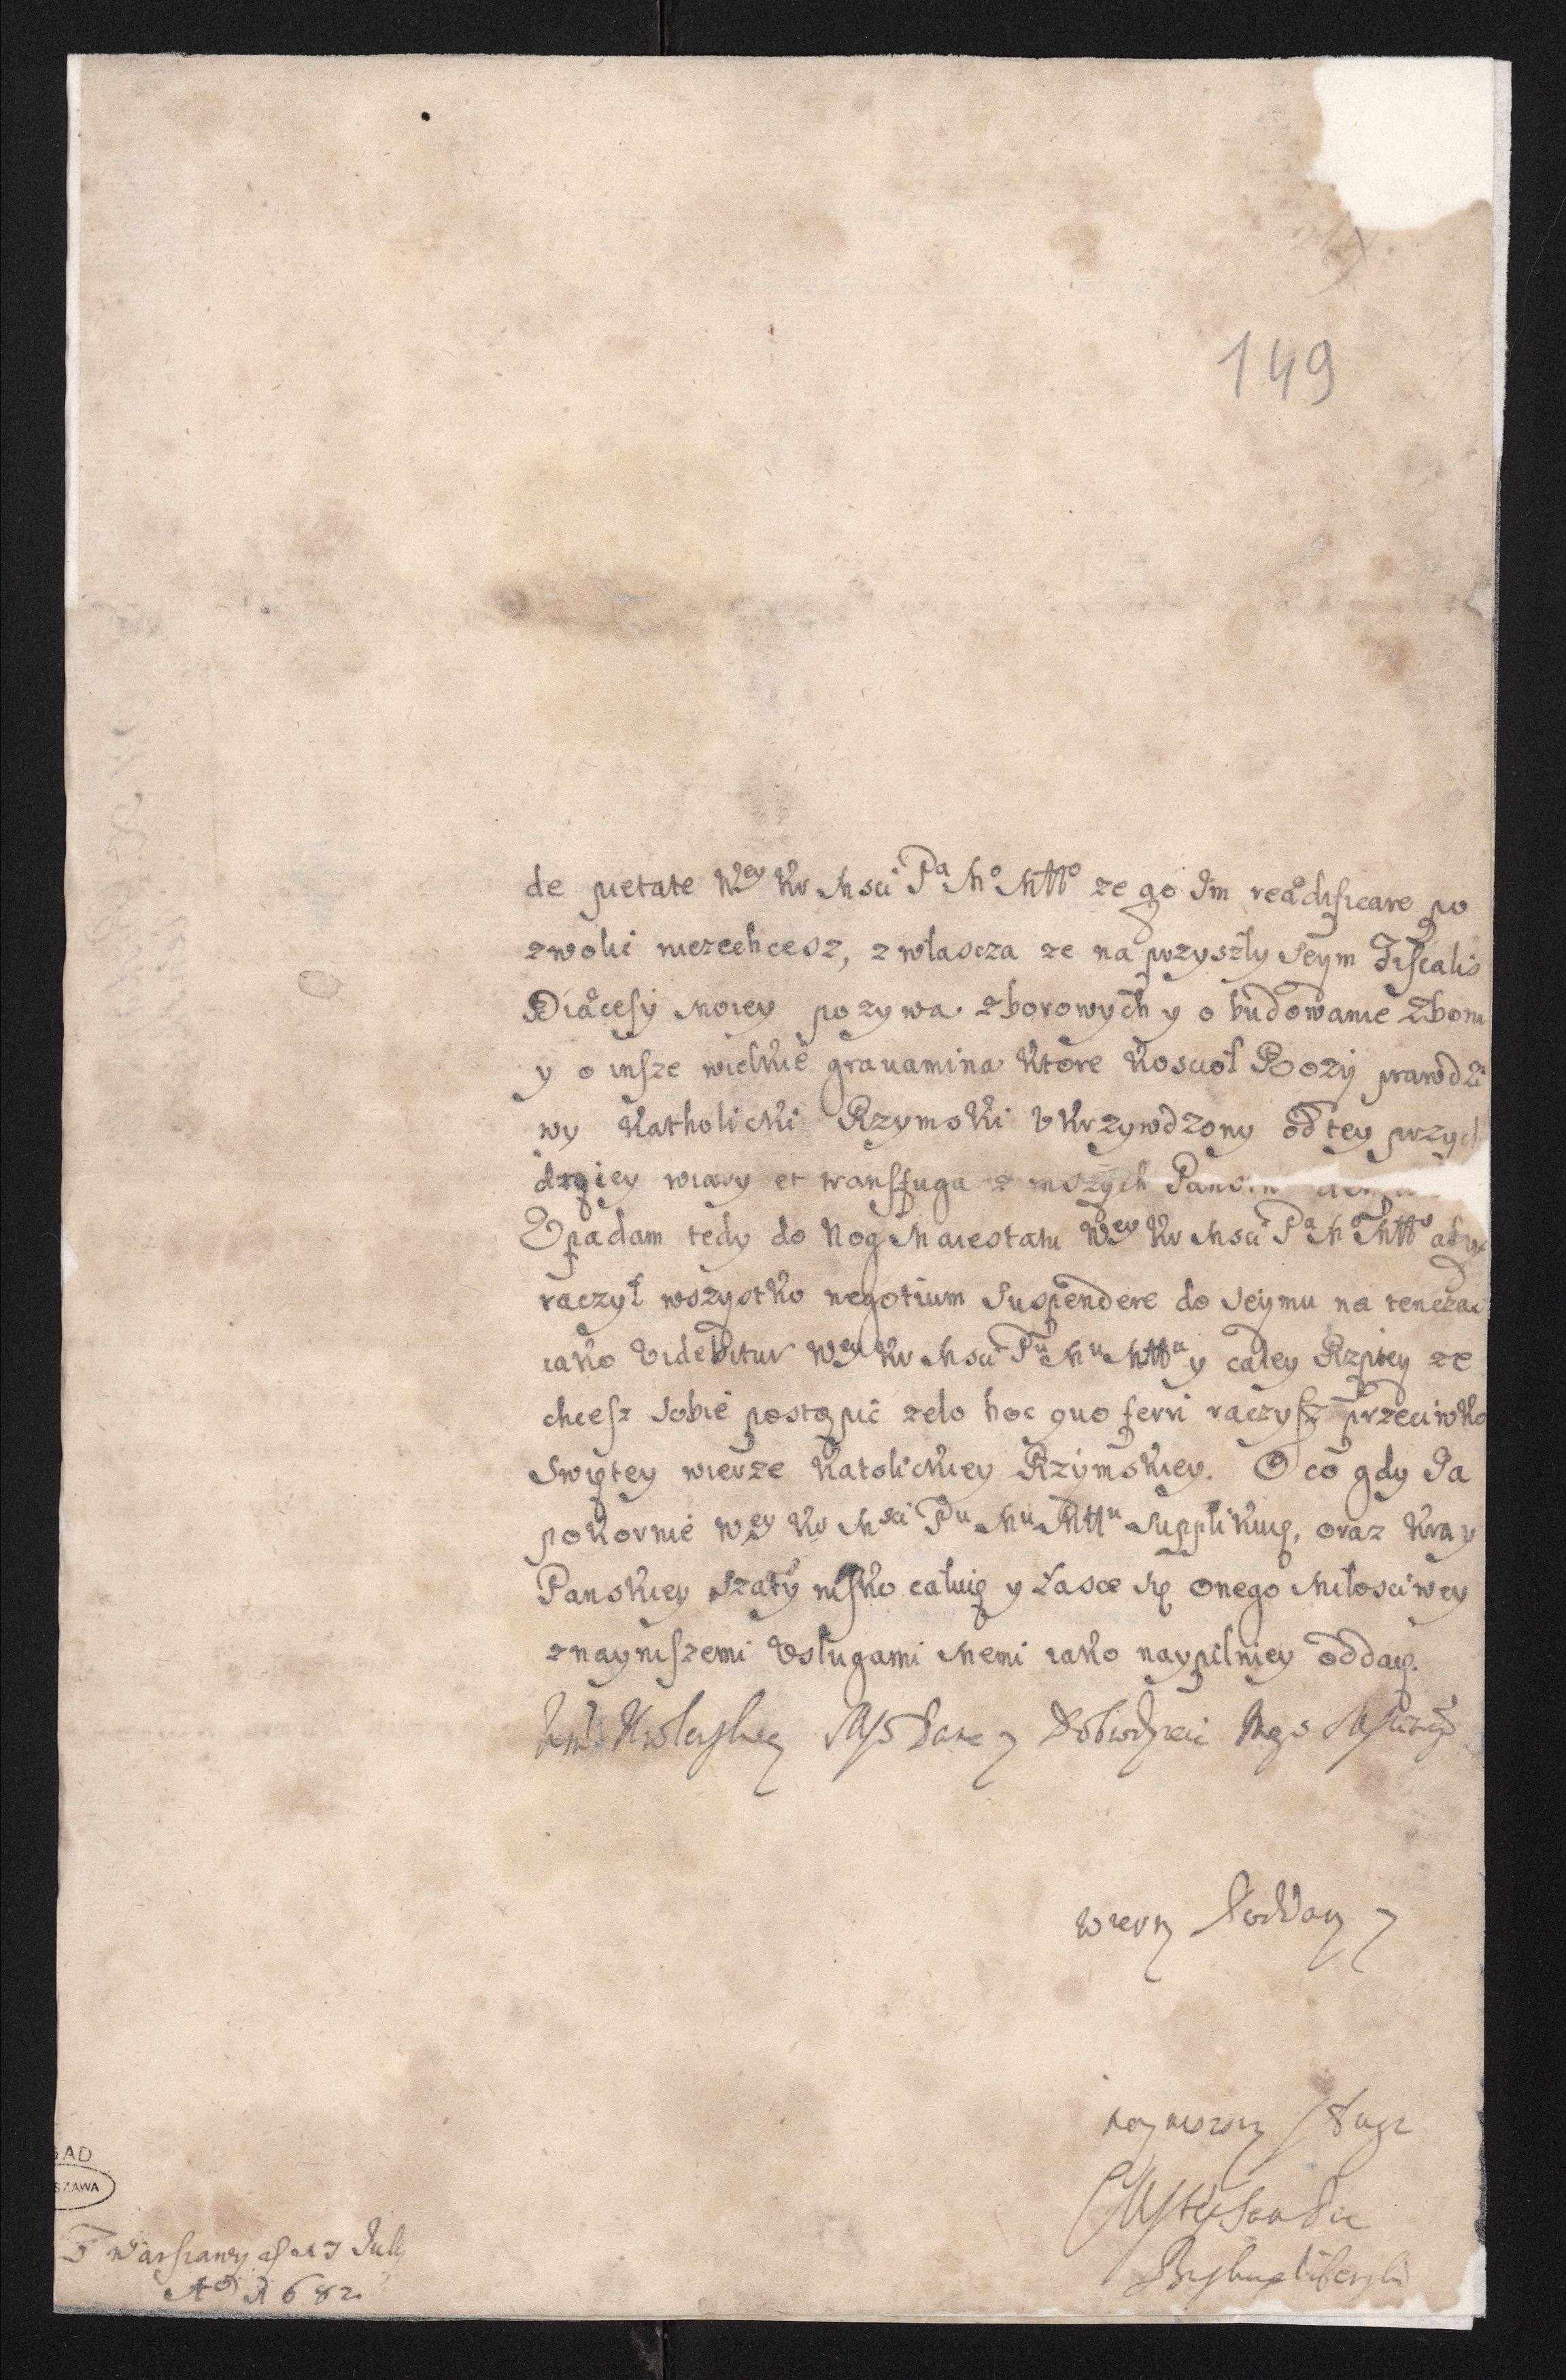 149
de pietate Wey Kr Msci Pa Mo MMo ze go Im reædificare po
zwolić niezechcesz, zwłascza ze na przyszły Seym Fiscalis
Diæcesÿ moiey pozywa zborowych y o budowanie Zboru
y o insze wielkie grauamina ktore Koscioł Bozÿ prawdzi
wy Katholicki Rzymski Vkrzywdzony od tey przych
dzącey wiary et transfuga z inszych
Vpadam tedy do Nog Maiestatu Wey Kr Msci Pa Mo MMo abys
raczył wszystko negotium suspendere do Seÿmu na tenczas
iako videbitur Wey Kr Msci Pu Mu MMu y całey Rzptey ze
chcesz sobie postąpić zelo hoc quo ferri raczysz przeciwko
Swiętey wierze Katolickiey Rzÿmskiey. O co gdy Ja
pokornie Wey Kr Msci Pu Mu MMu supplikuię, oraz kray
Panskiey szaty nisko całuię y Łasce się onego Miłosciwey
z nayniszemi Vsługami memi iako naypilniey oddaię.
wierny Poddany y
naynizszy sługa
Z Warszawy d 17 July
Ao 1682
AD
SZAWA